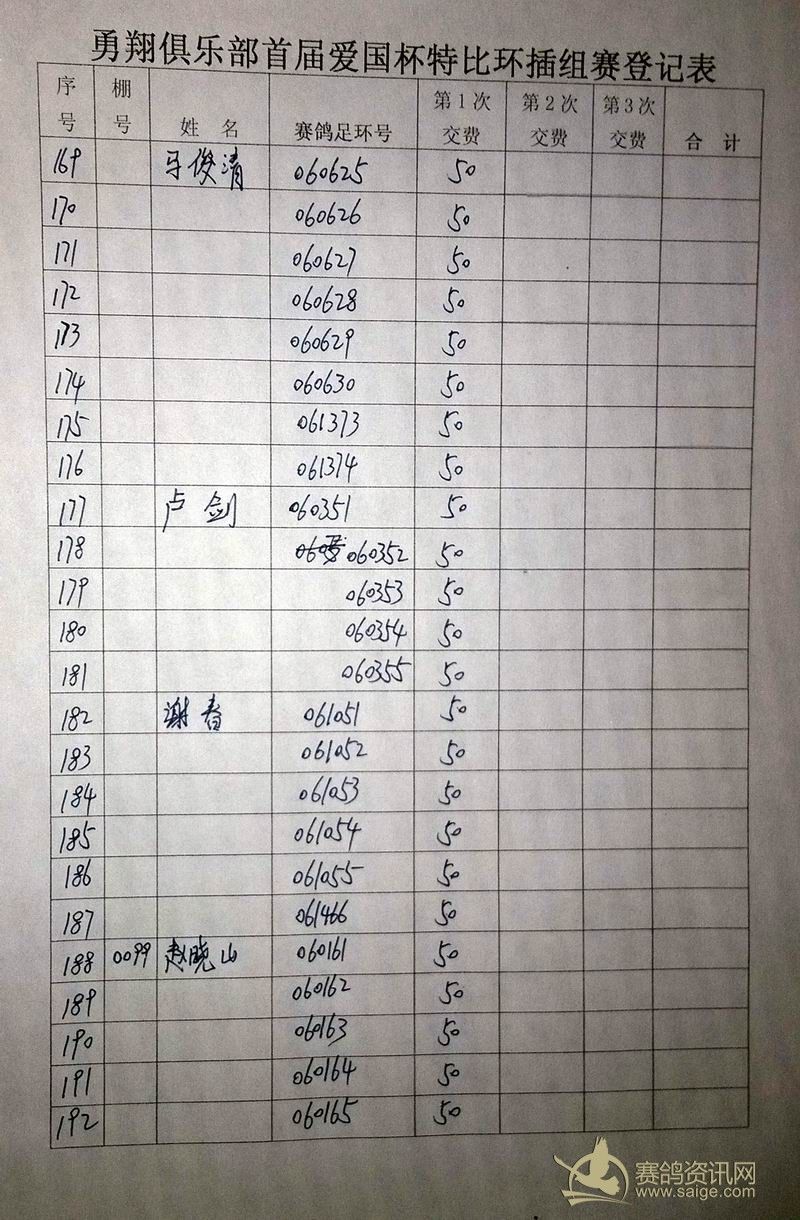 勇翔俱乐部首届爱国杯特比环插组赛登记表
序号 棚号 姓 名 赛鸽足环号 第1次交费 第2次交费 第3次交费 合 计
169 马俊清 060625 50
170 060626 50
171 060627 50
172 060628 50
173 060629 50
174 060630 50
175 061373 50
176 061374 50
177 卢剑 060351 50
178 060352 50
179 060353 50
180 060354 50
181 060355 50
182 谢春 061051 50
183 061052 50
184 061053 50
185 061054 50
186 061055 50
187 061466 50
188 0099 赵晓山 060161 50
189 060162 50
190 060163 50
191 060164 50
192 060165 50
赛鸽资讯网
www.saige.com